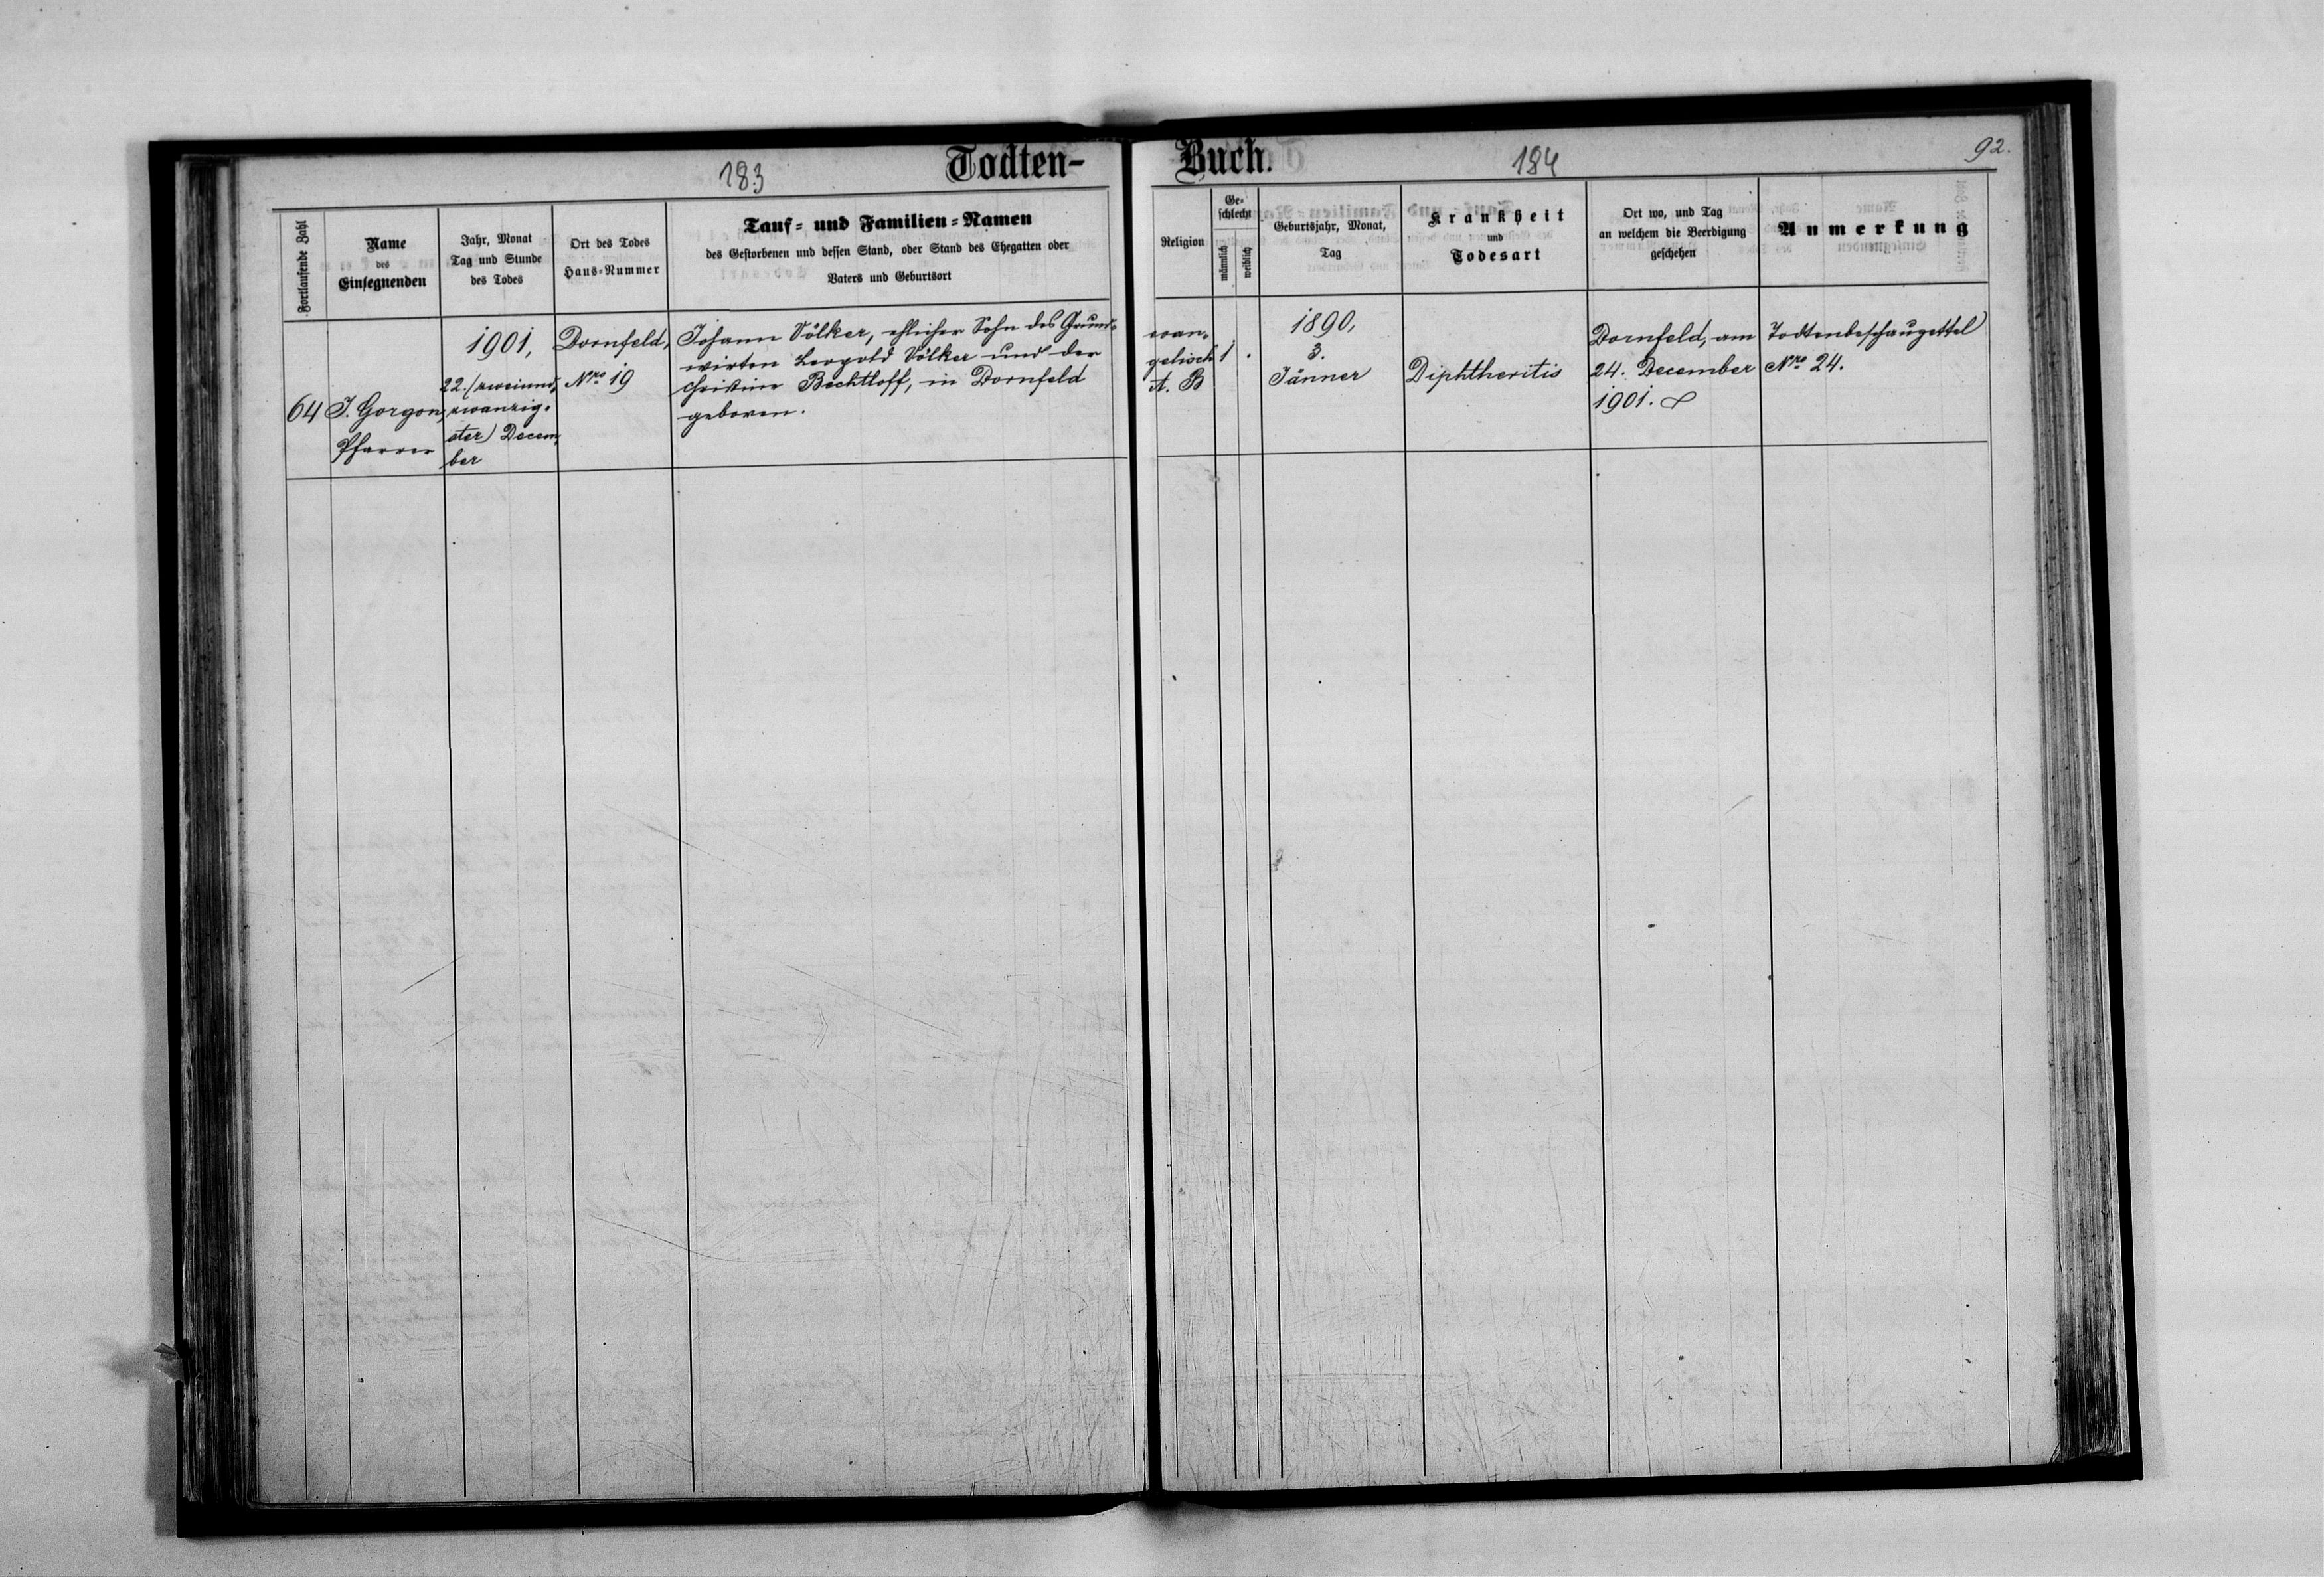 183
Todten-
Fortlaufende Zahl
Name
des
Einsegnenden
Jahr, Monat
Tag und Stunde
des Todes
Ort des Todes
Haus-Nummer
Tauf- und Familien-Namen
des Gestorbenen und dessen Stand, oder Stand des Ehegatten oder
Vaters und Geburtsort
64
J. Gorgon,
Pfarrer
1901,
22. (zweiund,
zwanzig-
ster) Decem,
ber
Dornfeld,
Nro 19
Johann Völker, ehlicher Sohn des Grund-
wirten Leopold Völker und der
Christine Bechtloff, in Dornfeld
geboren.
Buch.
184
92.
Religion
Ge-
schlecht
männlich
weiblich
Geburtsjahr, Monat,
Tag
Krankheit
und
Todesart
Ort wo, und Tag
an welchem die Beerdigung
geschehen
Anmerkung
evan-
gelisch
A. B
1
.
1890,
3.
Jänner
Diphtheritis
Dornfeld, am
24. December
1901.
Todtenbeschauzettel
Nro 24.